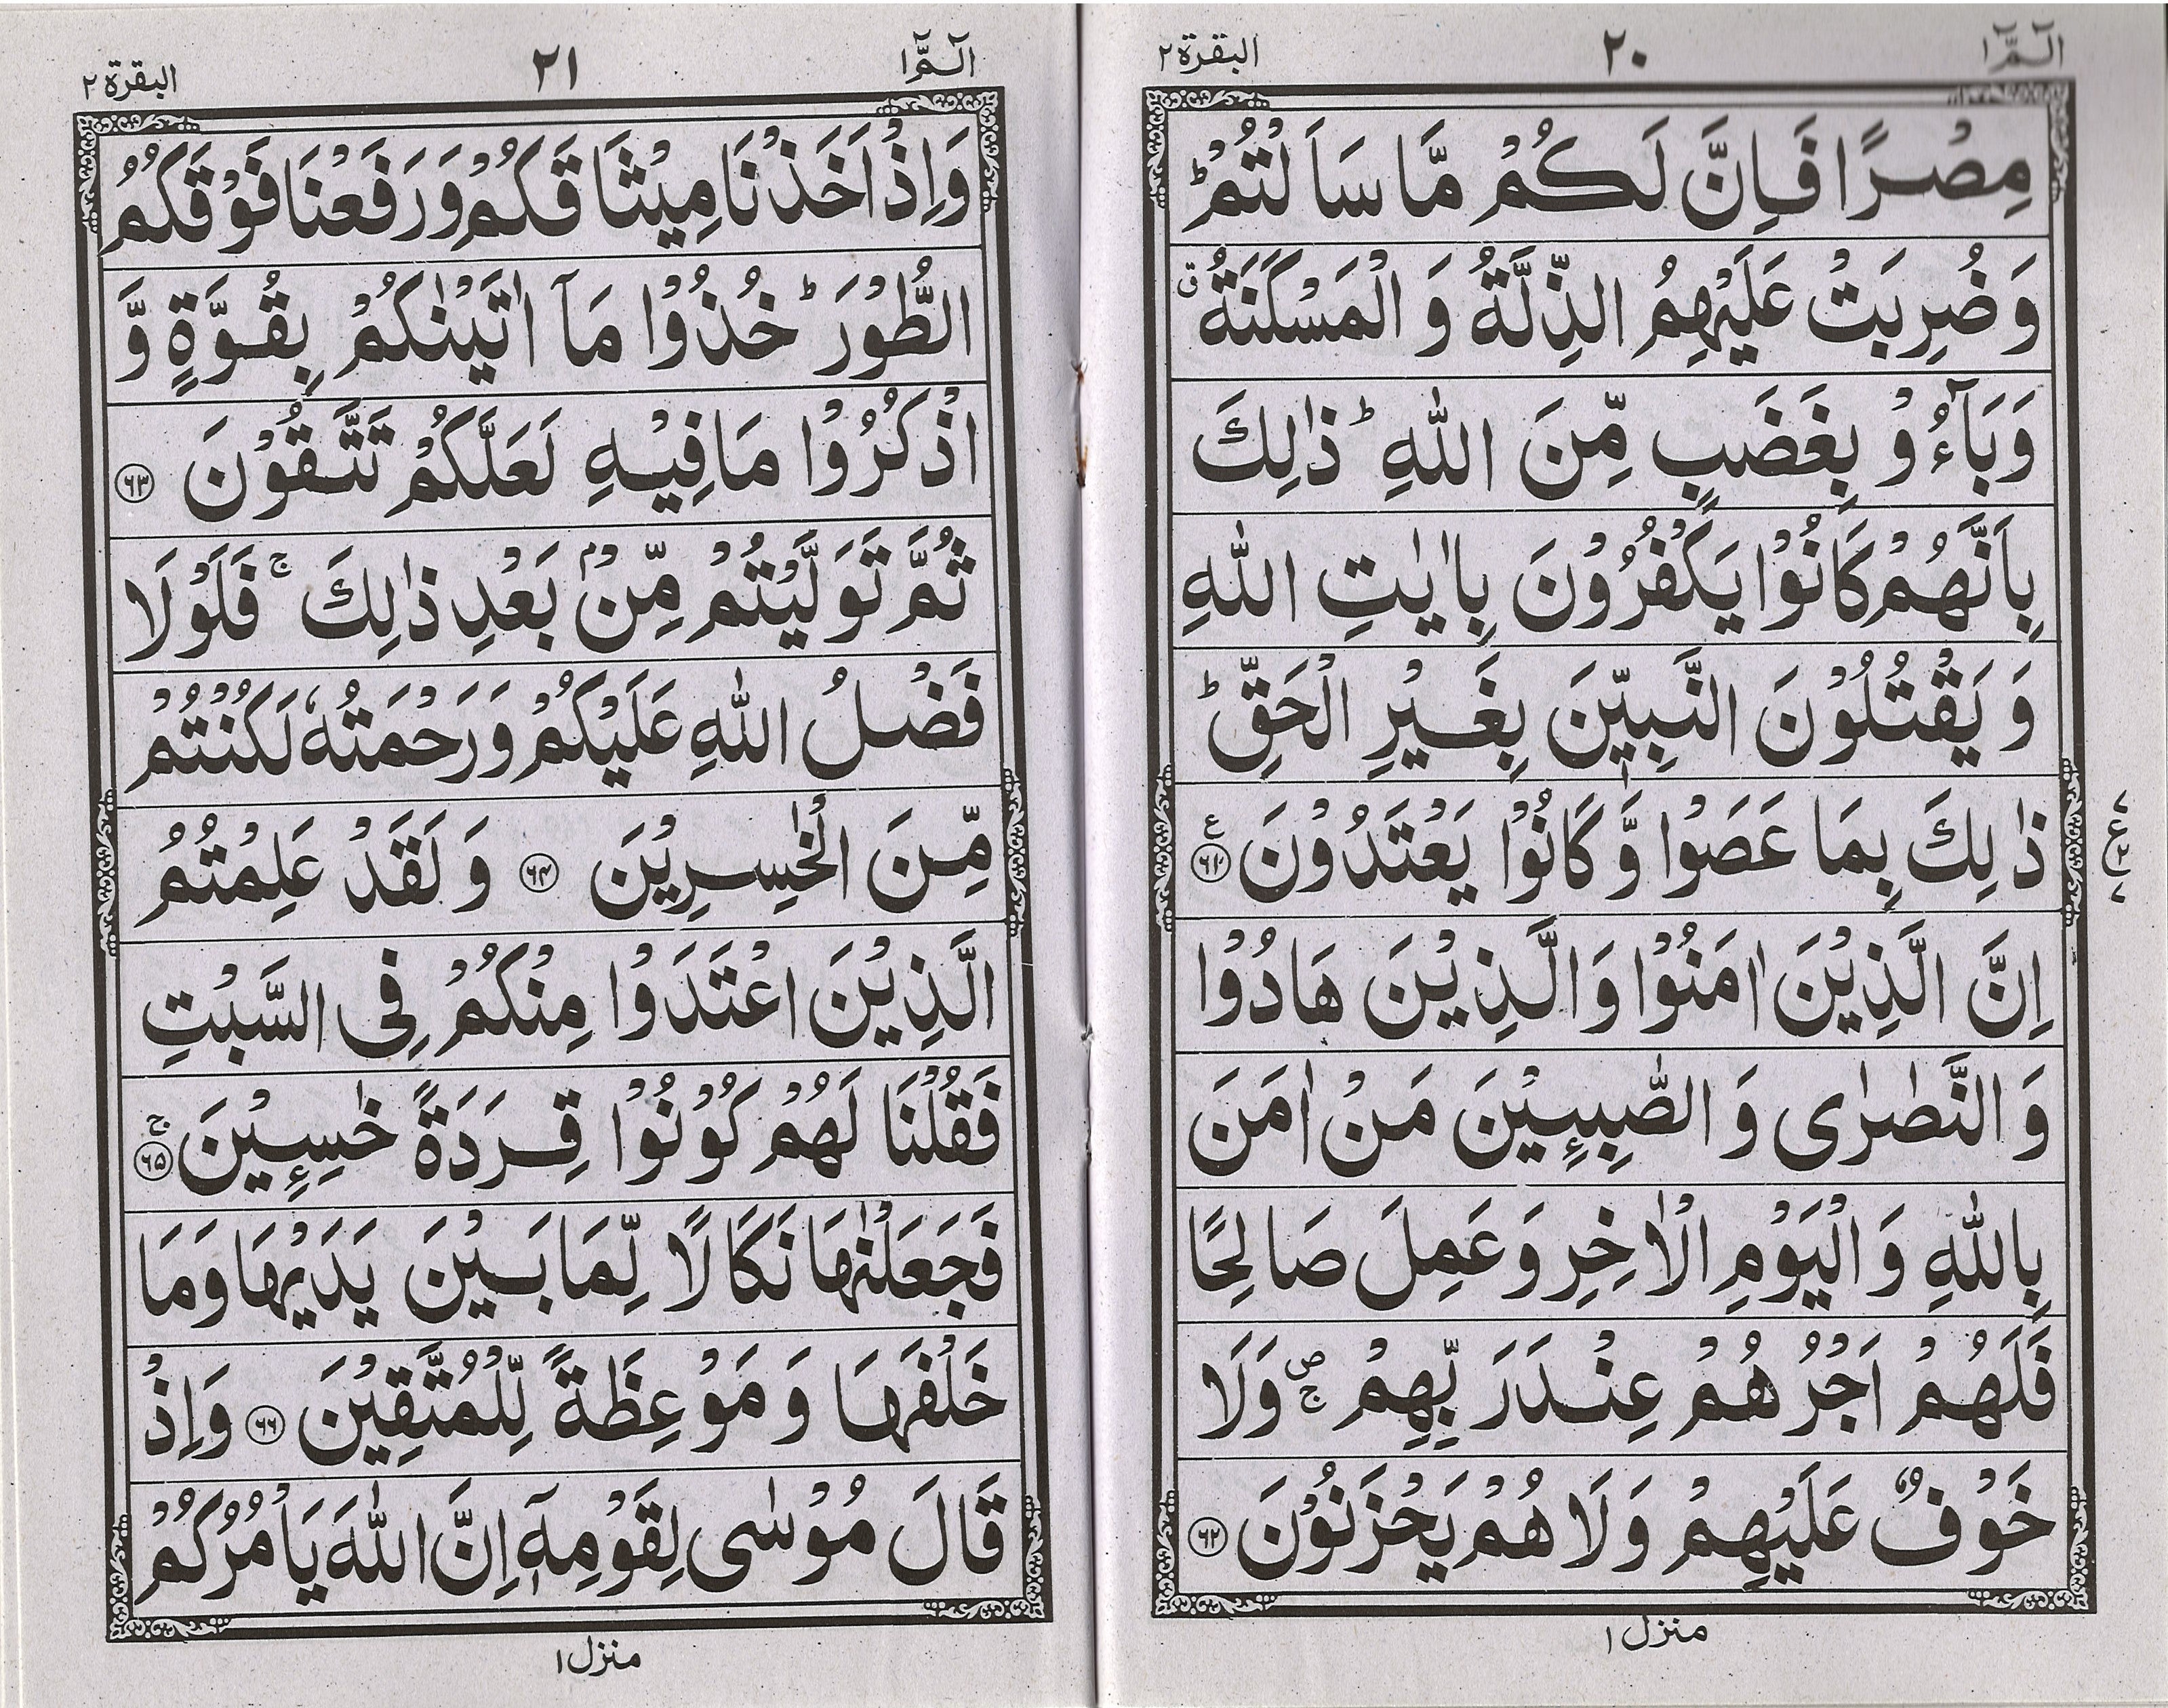 الٓمّٓ ١
٢٠
البقرة ٢
مِصْرًا فَاِنَّ لَكُمْ مَّا سَاَلْتُمْ ؕ
وَضُرِبَتْ عَلَيْهِمُ الذِّلَّةُ وَ الْمَسْكَنَةُ ۗ
وَبَآءُ وْ بِغَضَبٍ مِّنَ اللّٰهِ ؕ ذٰلِكَ
بِاَنَّهُمْ كَانُوْا يَكْفُرُوْنَ بِاٰيٰتِ اللّٰهِ
وَ يَقْتُلُوْنَ النَّبِيّٖنَ بِغَيْرِ الْحَقِّ ؕ
ذٰلِكَ بِمَا عَصَوْا وَّ كَانُوْا يَعْتَدُوْنَ ۠ ﴿٦١﴾ ع
اِنَّ الَّذِيْنَ اٰمَنُوْا وَالَّذِيْنَ هَادُوْا
وَ النَّصٰرٰى وَ الصّٰبِـِٕيْنَ مَنْ اٰمَنَ
بِاللّٰهِ وَ الْيَوْمِ الْاٰخِرِ وَعَمِلَ صَالِحًا
فَلَهُمْ اَجْرُهُمْ عِنْدَ رَبِّهِمْ ۪ۚ وَلَا
خَوْفٌ عَلَيْهِمْ وَلَا هُمْ يَحْزَنُوْنَ ﴿٦٢﴾
منزل ١
الٓمّٓ ١
٢١
البقرة ٢
وَاِذْ اَخَذْنَا مِيْثَاقَكُمْ وَرَفَعْنَا فَوْقَكُمُ
الطُّوْرَ ؕ خُذُوْا مَآ اٰتَيْنٰكُمْ بِقُوَّةٍ وَّ
اذْكُرُوْا مَا فِيْهِ لَعَلَّكُمْ تَتَّقُوْنَ ﴿٦٣﴾
ثُمَّ تَوَلَّيْتُمْ مِّنْۢ بَعْدِ ذٰلِكَ ۚ فَلَوْلَا
فَضْلُ اللّٰهِ عَلَيْكُمْ وَرَحْمَتُهٗ لَكُنْتُمْ
مِّنَ الْخٰسِرِيْنَ ﴿٦٤﴾ وَ لَقَدْ عَلِمْتُمُ
الَّذِيْنَ اعْتَدَوْا مِنْكُمْ فِى السَّبْتِ
فَقُلْنَا لَهُمْ كُوْنُوْا قِرَدَةً خٰسِـِٕيْنَ ۚ ﴿٦٥﴾
فَجَعَلْنٰهَا نَكَالًا لِّمَا بَيْنَ يَدَيْهَا وَمَا
خَلْفَهَا وَ مَوْعِظَةً لِّلْمُتَّقِيْنَ ﴿٦٦﴾ وَاِذْ
قَالَ مُوْسٰى لِقَوْمِهٖٓ اِنَّ اللّٰهَ يَاْمُرُكُمْ
منزل ١